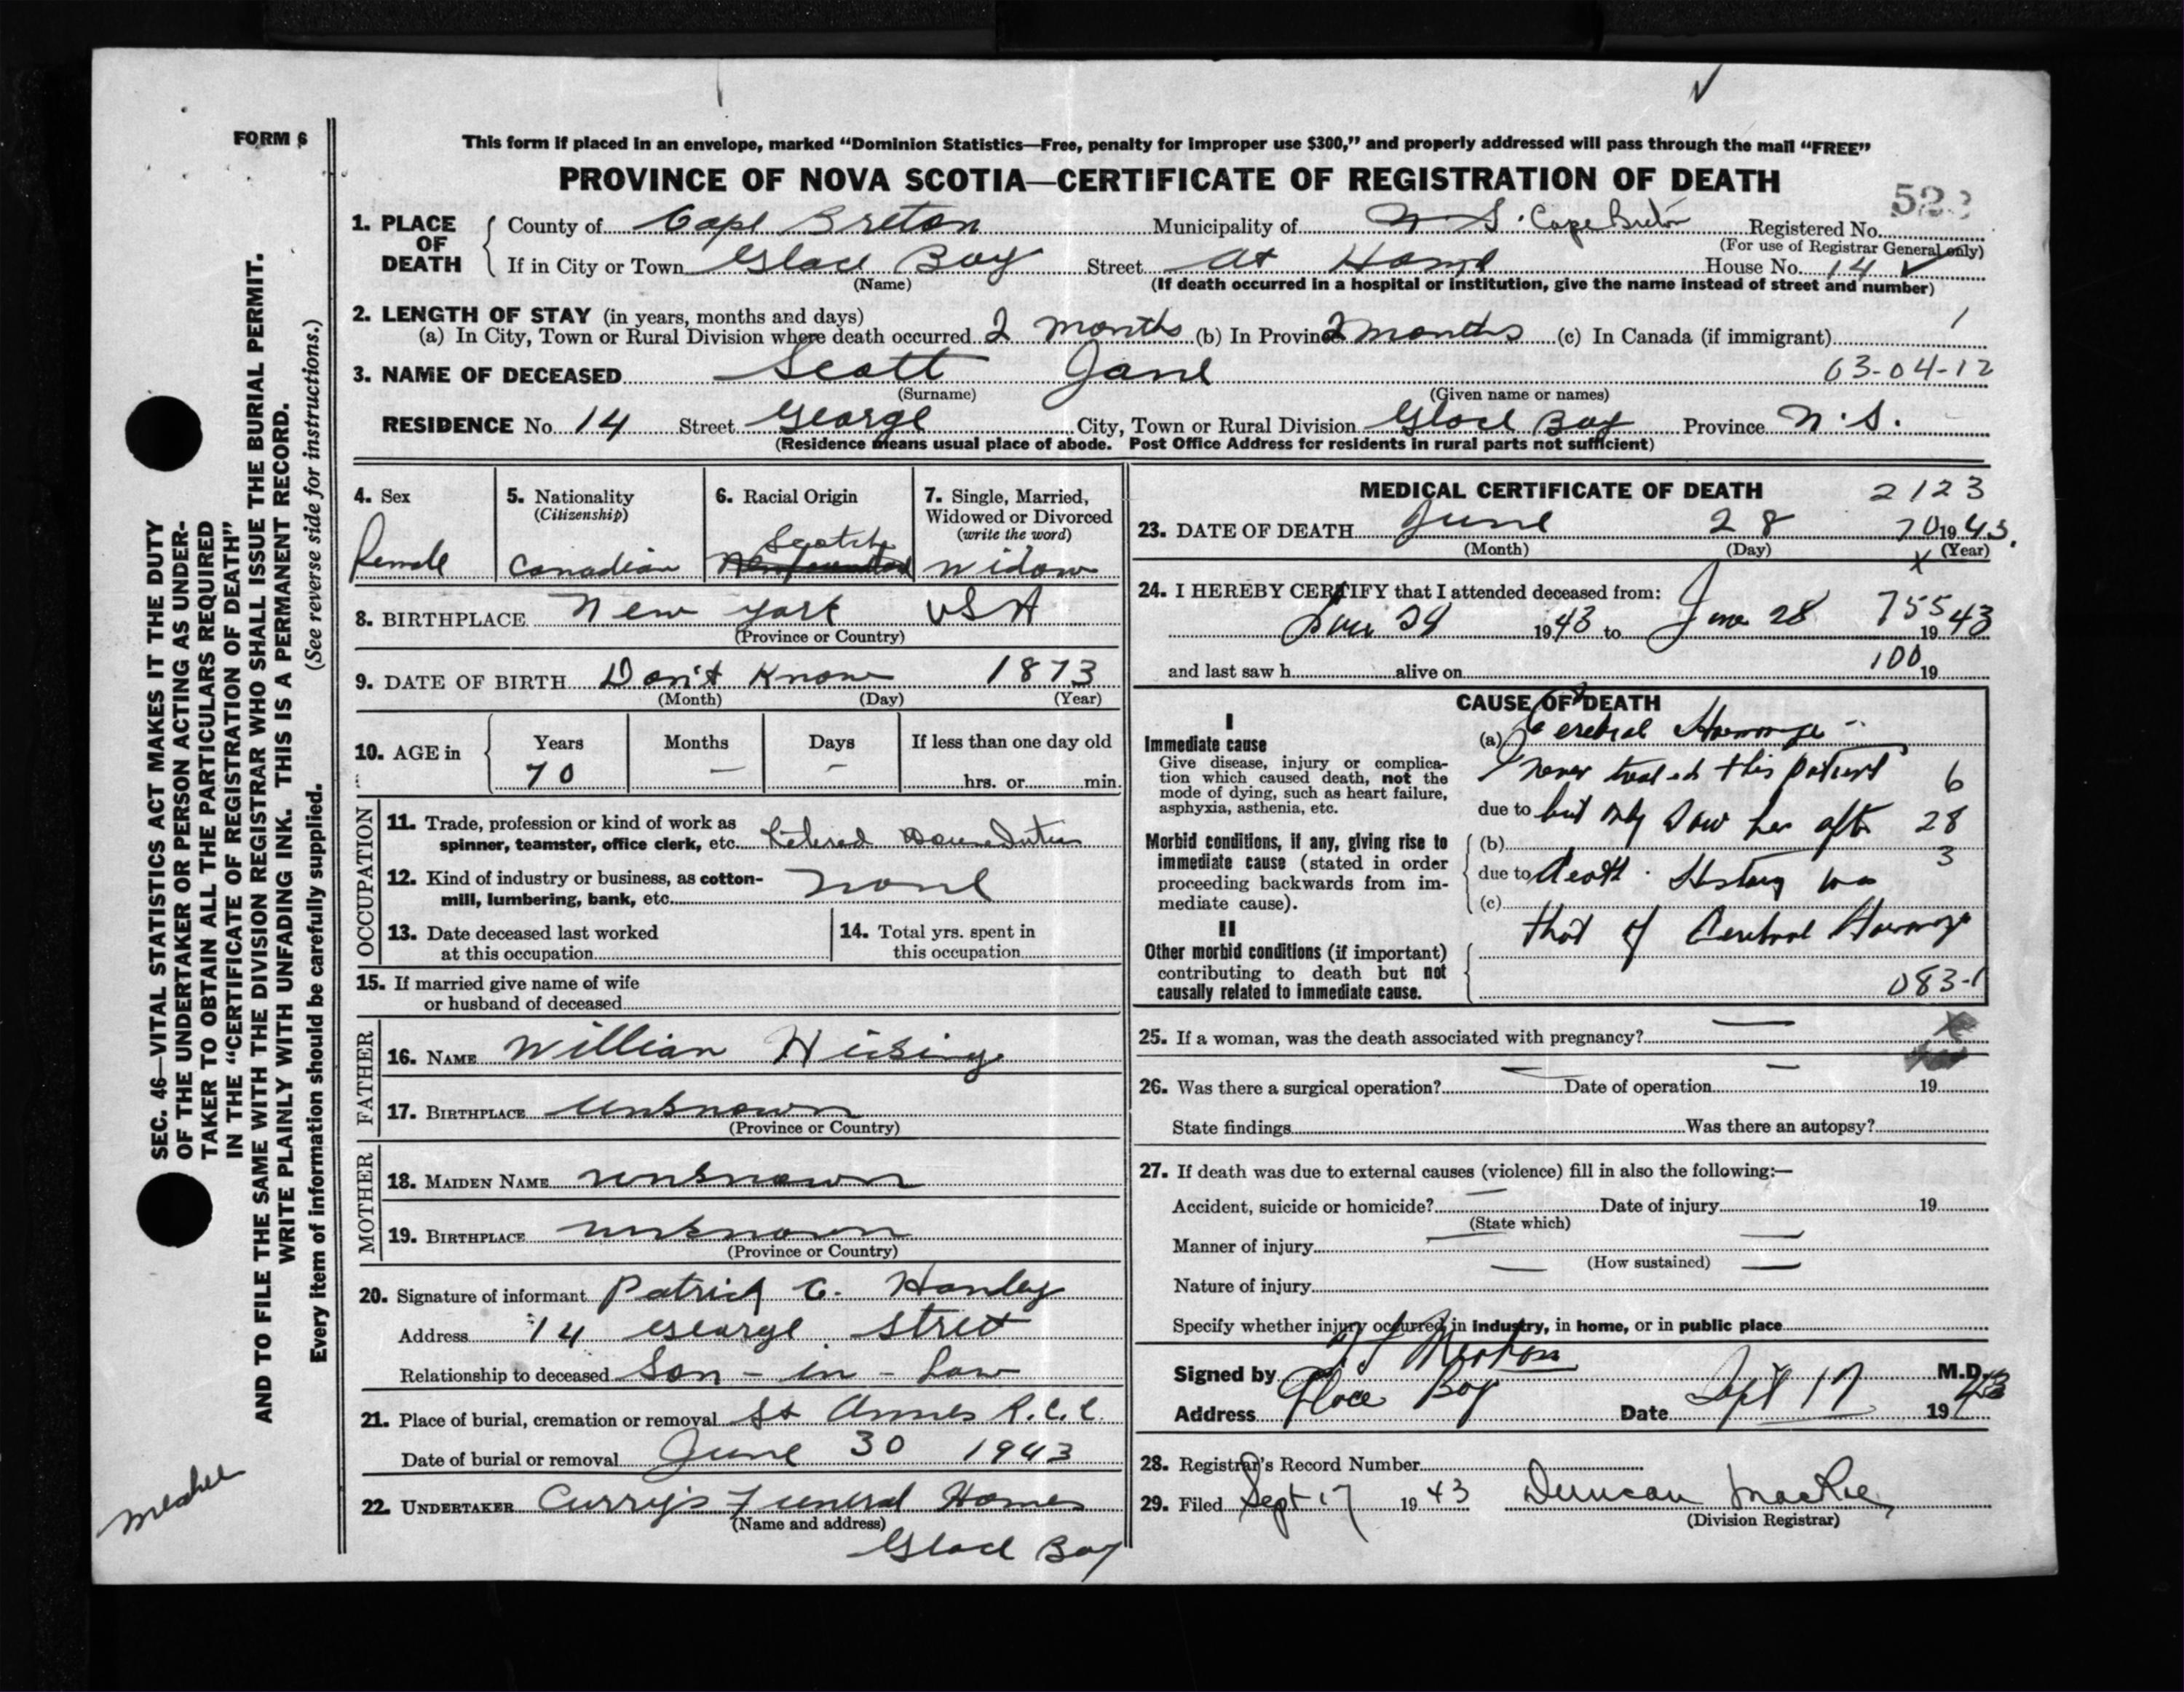 FORM 6
This form if placed in an envelope, marked "Dominion Statistics—Free, penalty for improper use $300," and properly addressed will pass through the mail "FREE"
PROVINCE OF NOVA SCOTIA—CERTIFICATE OF REGISTRATION OF DEATH
1. PLACE OF DEATH
County of Cape Breton Municipality of N S. Cape Breton Registered No.
(For use of Registrar General only)
If in City or Town Glace Bay Street At Home House No. 14
(Name) (If death occurred in a hospital or institution, give the name instead of street and number)
2. LENGTH OF STAY (in years, months and days) 1
(a) In City, Town or Rural Division where death occurred 2 months (b) In Province 2 months (c) In Canada (if immigrant)
3. NAME OF DECEASED Scott Jane 63-04-12
(Surname) (Given name or names)
RESIDENCE No. 14 Street George City, Town or Rural Division Glace Bay Province N.S.
(Residence means usual place of abode. Post Office Address for residents in rural parts not sufficient)
4. Sex
Female
5. Nationality
(Citizenship)
Canadian
6. Racial Origin
Scotch
7. Single, Married,
Widowed or Divorced
(write the word)
Widow
8. BIRTHPLACE New York USA
(Province or Country)
9. DATE OF BIRTH Don't Know 1873
(Month) (Day) (Year)
10. AGE in
Years Months Days If less than one day old
70 — — hrs. or min.
OCCUPATION
11. Trade, profession or kind of work as
spinner, teamster, office clerk, etc. Retired House Duties
12. Kind of industry or business, as cotton-
mill, lumbering, bank, etc. none
13. Date deceased last worked
at this occupation
14. Total yrs. spent in
this occupation
15. If married give name of wife
or husband of deceased
FATHER
16. NAME Willian
17. BIRTHPLACE Unknown
(Province or Country)
MOTHER
18. MAIDEN NAME unknown
19. BIRTHPLACE unknown
(Province or Country)
20. Signature of informant Patrick C. Hanley
Address 14 George Street
Relationship to deceased Son-in-Law
21. Place of burial, cremation or removal St Annes R.C.C.
Date of burial or removal June 30 1943
22. UNDERTAKER Curry's Funeral Homes
(Name and address)
Glace Bay
MEDICAL CERTIFICATE OF DEATH 2123
23. DATE OF DEATH June 28 70 1943.
(Month) (Day) (Year)
x
24. I HEREBY CERTIFY that I attended deceased from:
June 28 1943 to June 28 755 1943
and last saw h alive on 100 19
CAUSE OF DEATH
I
Immediate cause
Give disease, injury or complica-
tion which caused death, not the
mode of dying, such as heart failure,
asphyxia, asthenia, etc.
Morbid conditions, if any, giving rise to
immediate cause (stated in order
proceeding backwards from im-
mediate cause).
II
Other morbid conditions (if important)
contributing to death but not
causally related to immediate cause.
(a) Cerebral
I never treated this patient 6
due to but only saw her after 28
(b) 3
due to death. History was
(c)
that of Cerebral
083-1
25. If a woman, was the death associated with pregnancy? —
26. Was there a surgical operation? — Date of operation — 19
State findings Was there an autopsy?
27. If death was due to external causes (violence) fill in also the following:—
Accident, suicide or homicide? — Date of injury 19
(State which)
Manner of injury — —
(How sustained)
Nature of injury — —
Specify whether injury occurred in industry, in home, or in public place
Signed by M.D.
Address Glace Bay Date Sept 17 1943
28. Registrar's Record Number
29. Filed Sept 17 1943 Duncan MacRae
(Division Registrar)
SEC. 46—VITAL STATISTICS ACT MAKES IT THE DUTY
OF THE UNDERTAKER OR PERSON ACTING AS UNDER-
TAKER TO OBTAIN ALL THE PARTICULARS REQUIRED
IN THE "CERTIFICATE OF REGISTRATION OF DEATH"
AND TO FILE THE SAME WITH THE DIVISION REGISTRAR WHO SHALL ISSUE THE BURIAL PERMIT.
WRITE PLAINLY WITH UNFADING INK. THIS IS A PERMANENT RECORD.
Every item of information should be carefully supplied. (See reverse side for instructions.)